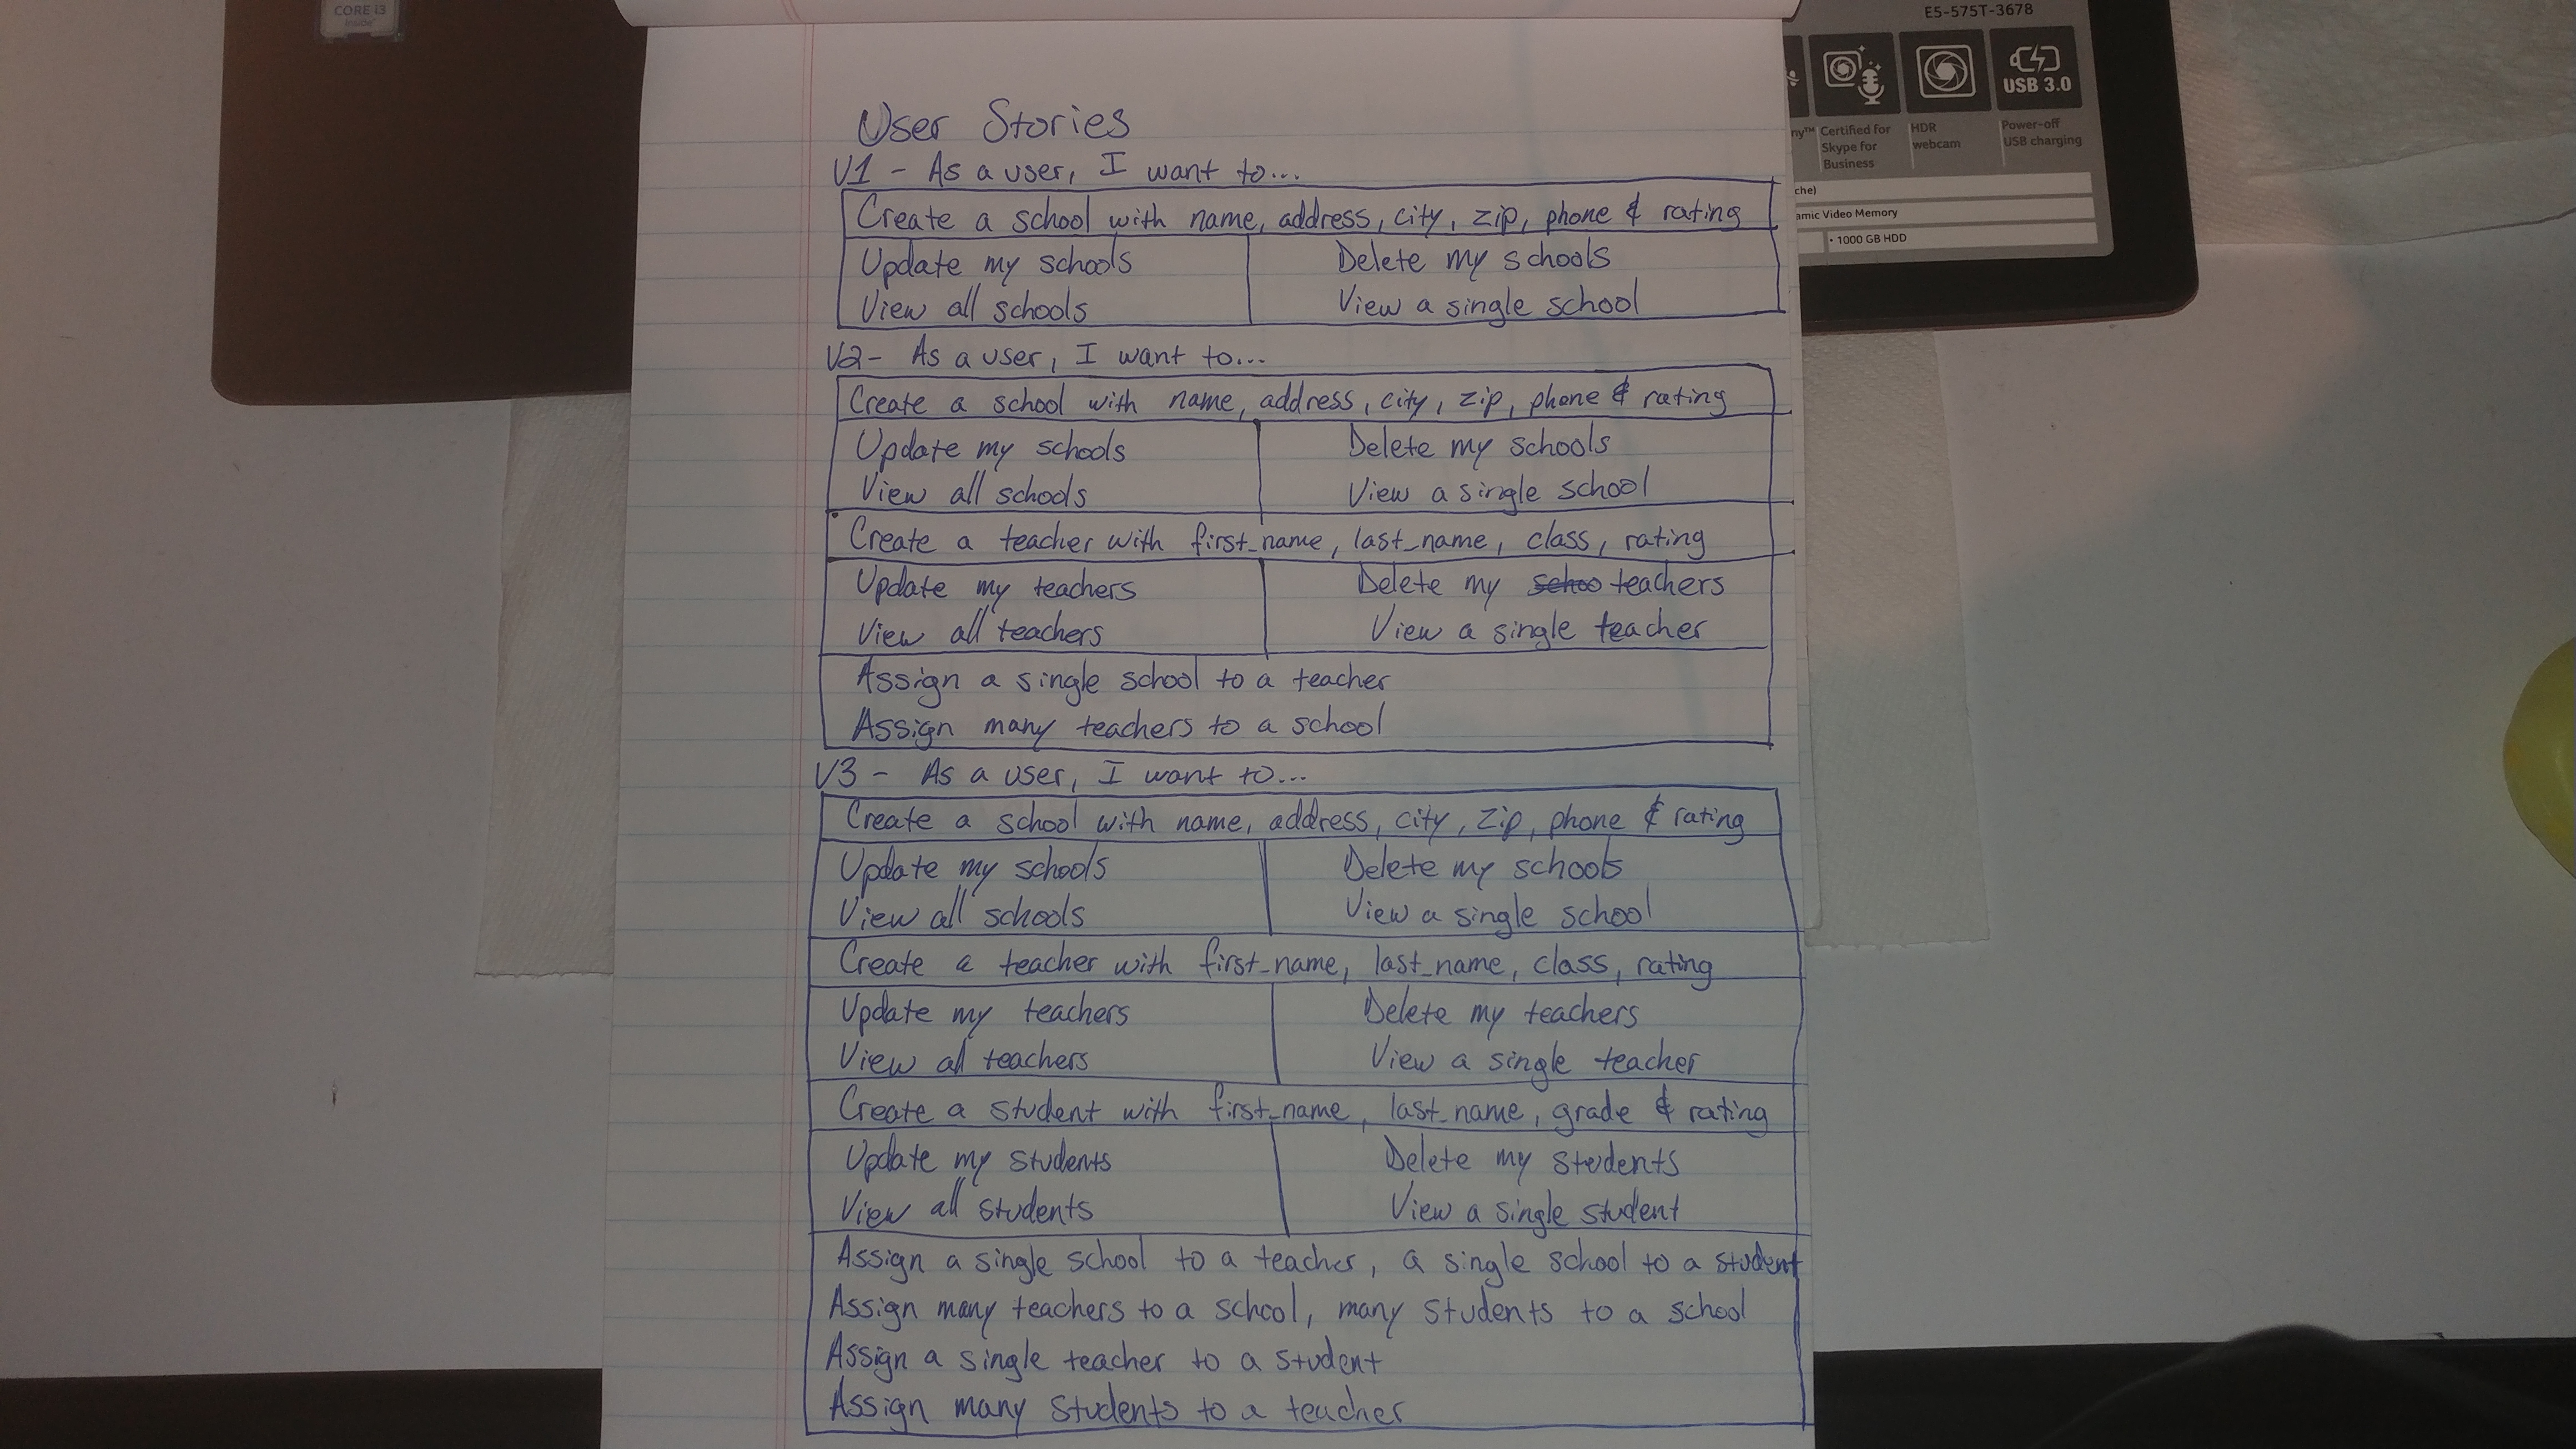 CORE i3
inside
E5-575T-3678
USB 3.0
Certified for
Skype for
Business
HDR
webcam
Power-off
USB charging
amic Video Memory
• 1000 GB HDD
User Stories
V1 - As a user, I want to...
Create a school with name, address, city, zip, phone & rating
Update my schools Delete my schools
View all schools View a single school
V2 - As a user, I want to...
Create a school with name, address, city, zip, phone & rating
Update my schools Delete my schools
View all schools View a single school
Create a teacher with first_name, last_name, class, rating
Update my teachers Delete my schoo teachers
View all teachers View a single teacher
Assign a single school to a teacher
Assign many teachers to a school
V3 - As a user, I want to...
Create a school with name, address, city, zip, phone & rating
Update my schools Delete my schools
View all schools View a single school
Create a teacher with first_name, last_name, class, rating
Update my teachers Delete my teachers
View all teachers View a single teacher
Create a student with first_name, last_name, grade & rating
Update my students Delete my students
View all students View a single student
Assign a single school to a teacher, a single school to a student
Assign many teachers to a school, many students to a school
Assign a single teacher to a student
Assign many students to a teacher